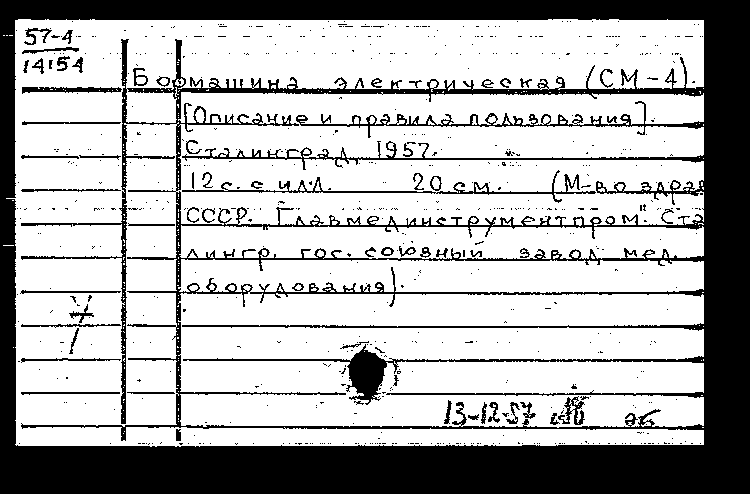 57-4
14154
Бормашина электрическая (СМ-4).
[Описание и правила пользования].
Сталинград, 1957.
12 с. с илл. 20 см. (М-во здрав
СССР. "Главмединструментпром". Ста
лингр. гос. союзный завод мед.
оборудования).
13-12-57